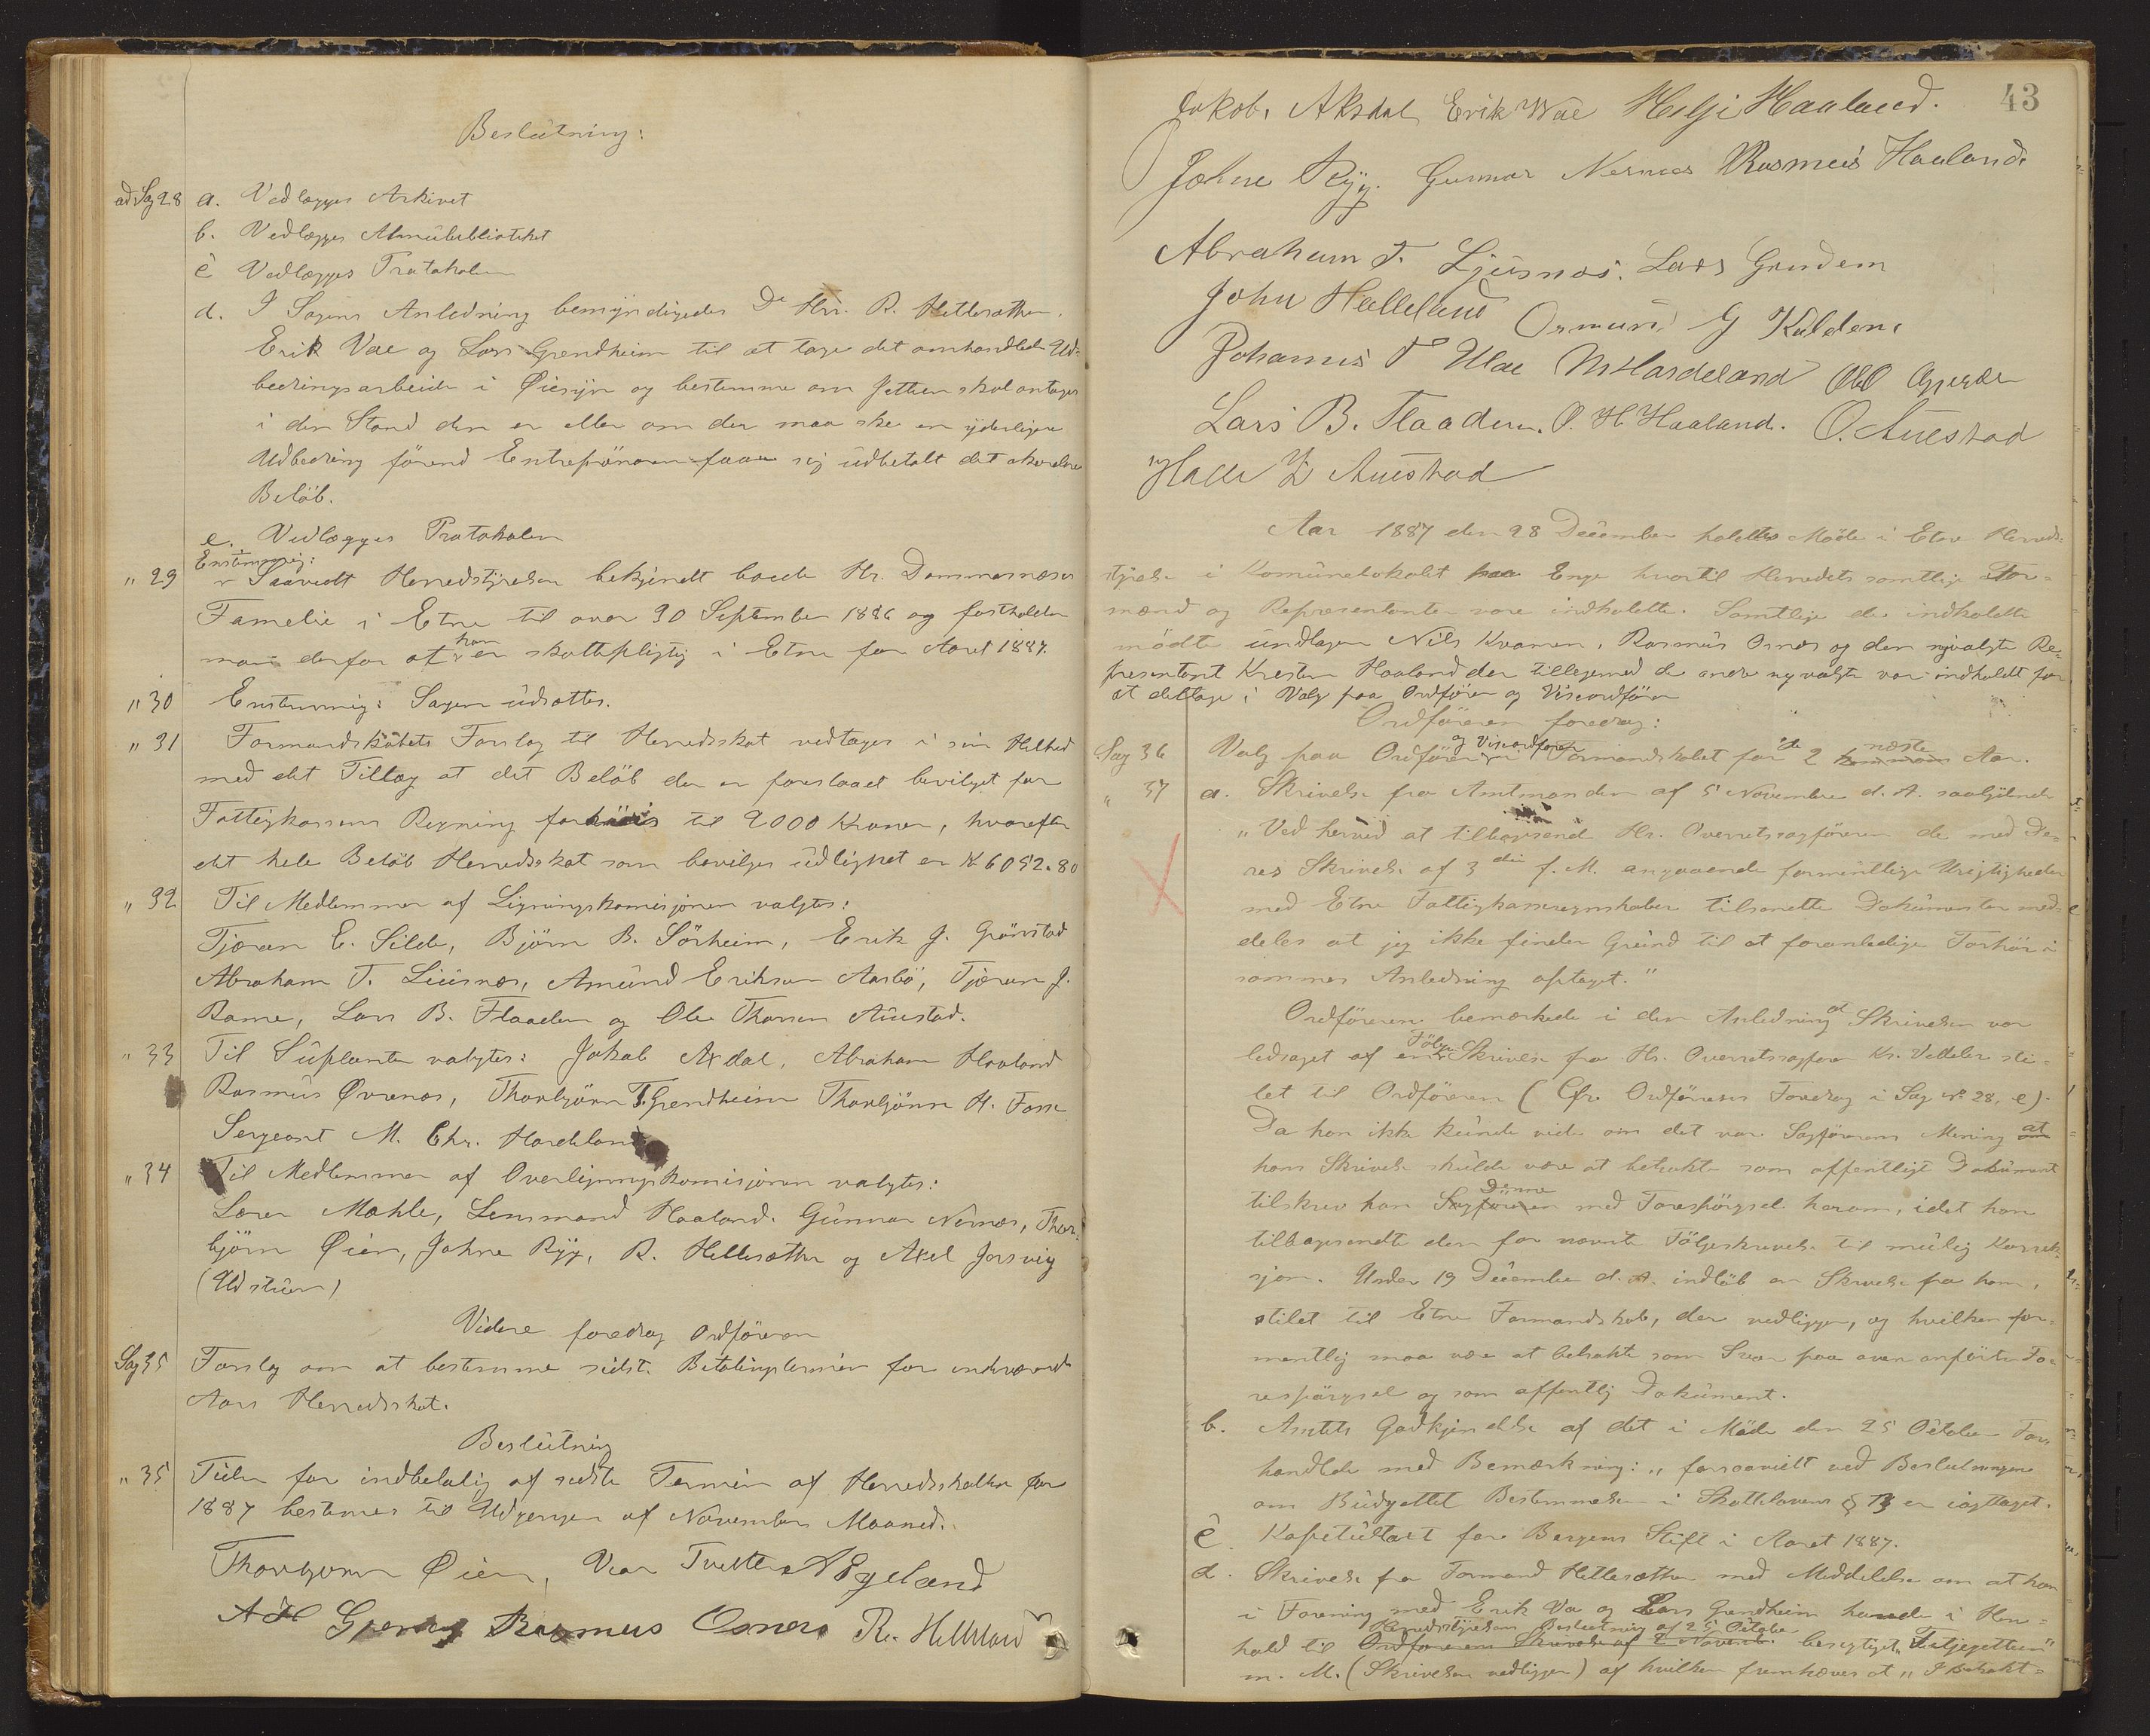 Beslutning:
ad Sag 28 a. Vedlægges Arkivet
b. Vedlægges Almubibliotheket
c Vedlægges Protokolen
d. I Sagens Anledning bemyndigedes Dr. Hrr. R. Hellesæther,
Erik Vae og Lars Grendheim til at tage det omhandlede Ud=
bedringsarbeide i Øiesyn og bestemme om Jetteen skal antages
i den Stand den er eller om der maa ske en yderligere
Udbedring förend Entreprönören faaer sig udbetalt det akorderede
Belöb.
e. Vedlægges Protokolen
Enstemmig:
" 29 Saavidt Herredstyrelsen bekjendt boede Hr. Dommersnæses
Famelie i Etne til over 30 September 1886 og fastholder
man derfor at han er skattepligtig i Etne for Aaret 1887.
" 30 Enstemmig: Sagen udsættes.
" 31 Formandskabets Forslag til Herredsskat vedtages i sin Helhed
med det Tillæg at det Belöb der er foreslaaet bevilget for
Fattigkassens Regning forhöies til 2000 Kroner, hvorefter
det hele Belöb Herredsskat som bevilges udlignet er Kr 6052.80
" 32 Til Medlemmer af Ligningskomisjonen valgtes:
Tjæran E. Silde, Björn B. Sörheim, Erik J. Grönstad
Abraham T. Liusnæs, Amund Eriksen Aasbö, Tjæran J.
Rame, Lars B. Flaaden og Ole Thorsen Austad.
" 33 Til Suplanter valgtes: Jakob Axdal, Abraham Haaland
Rasmus Øvrenæs, Thorbjörn T. Grendheim Thorbjörn H. Fosse
Sergeant M. Chr. Hardeland
" 34 Til Medlemmer af Overligningskomisjonen valgtes:
Lærer Mæhle, Lensmand Haaland. Gunnar Nernæs, Thor=
björn Øien, Johne Ryg, R. Hellesæther og Axel Jorsvig
(Udstuen)
Videre foredrog Ordföreren
Sag 35 Forslag om at bestemme sidste Betalingstermin for indeværende
Aars Herredsskat.
Beslutning
" 35 Tiden for indbetaling af sidste Termin af Herredsskatten for
1887 bestemes til Udgangen af November Maaned.
Thorbjørn Øien, Vear Tvette A Egeland
Rasmus Osnæs R. Helleland
43
Jakob. Aksdal Erik Wae Helji Haaland.
Johne Ryg. Gunnar Nernes Rasmus Haaland.
Abraham T. Ljusnæs. Lars Grindem
John Helleland Ormund G Kalden.
Johannis T Vae M Hardeland
Lars B. Flaaden. O. H Haaland. O. Austad
Austad
Aar 1887 den 28 December holdtes Möde i Etne Herreds=
styrelse i Komunelokalet paa Enge hvortil Herredets samtlige For=
mænd og Repræsentanter vare indkaldte. Samtlige de indkaldte
mödte undtagen Nils Kvamen, Rasmus Osnæs og den nyvalgte Re=
præsentant Kresten Haaland der tilligemed de andre nyvalgte var indkaldt for
at deltage i Valg paa Ordförer og Viseordförer
Ordföreren foredrog:
Sag 36 Valg paa Ordförer og Viseordförer Formandskabet for de 2 næste Aar.
" 37 a. Skrivelse fra Amtmanden af 5 November d. A. saalydende
" Ved herved at tilbagesende Hr. Overretssagföreren de med De=
res Skrivelse af 3die f. M. angaaende formentlige Urigtigheder
med Etne Fattigkasseregnskaber tilsendte Dokumenter med=
deles at jeg ikke finder Grund til at foranledige Forhör i
sammes Anledning optaget."
Ordföreren bemærkede i den Anledning at Skrivelsen var
ledsaget af en Fölge Skrivelse fra Hr. Overretssagförer Kr. Velleler sti=
let til Ordföreren (Cfr. Ordförerens Foredrag i Sag No 28. e).
Da han ikke kunde vide om det var Sagförerens Mening at
hans Skrivelse skulde være at betrakte som offentligt Dokument
tilskrev han Denne med Forespörgsel herom, idet han
tilbagesendte den for nævnte Fölgeskrivelse til mulig Korrek=
sjon. Under 19 December d. A. indlöb en Skrivelse fra ham,
stilet til Etne Formandskab, der vedligger, og hvilken for=
mentlig maa være at betrakte som Svar paa oven anförte Fo=
respörgsel og som offentlig Dokument.
b. Amtets Godkjendelse af det i Möde den 25 October For=
handlede med Bemærkning: " forsaavidt ved Beslutningen
om Budgettet Bestemmelsen i Skattelovens § 13 er iagttaget.
c. Kapitultaxt for Bergens Stift i Aaret 1887.
d. Skrivelse fra Formand Hellesæther med Meddelelse om at han
i Forening med Erik Va og Lars Grendheim havde i Hen=
Herredstyrelsens Beslutning af 25 October
hold til Ordförerens Skrivelse af 2 Novemb. besigtiget
m. M. (Skrivelsen vedligger) af hvilken fremhæves at " I Betrakt=